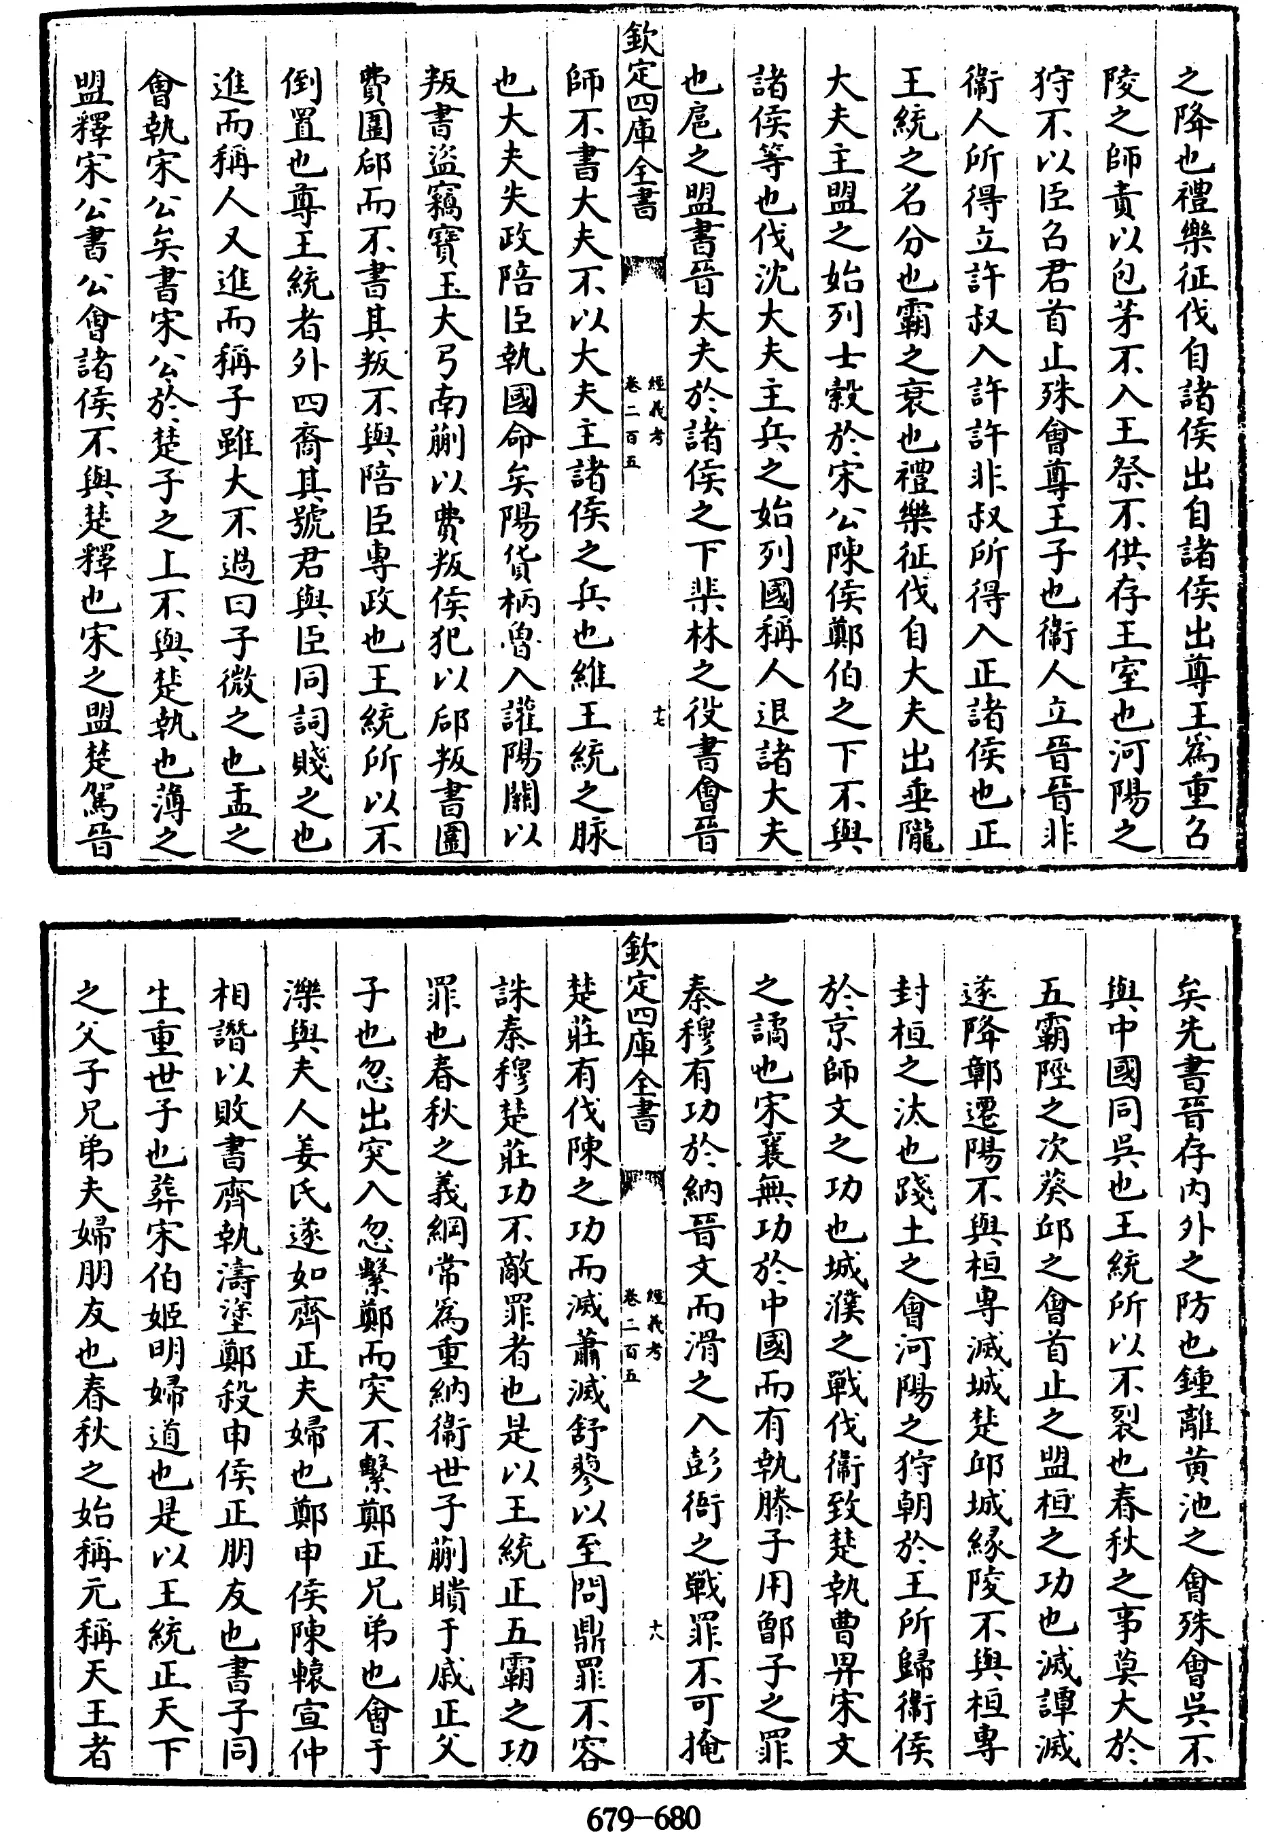 之降也禮樂征伐自諸侯出自諸侯出尊王為重召
陵之師責以包茅不入王祭不供存王室也河陽之
狩不以臣召君首止殊會尊王子也衞人立晉晉非
衞人所得立許叔入許許非叔所得入正諸侯也正
王統之名分也霸之衰也禮樂征伐自大夫出垂隴
大夫主盟之始列士縠於宋公陳侯鄭伯之下不與
諸侯等也伐沈大夫主兵之始列國稱人退諸大夫
也扈之盟書晉大夫於諸侯之下棐林之役書會晉
欽定四庫全書
經義考
卷二百五
十七
師不書大夫不以大夫主諸侯之兵也維王統之脉
也大夫失政陪臣執國命矣陽貨柄魯入讙陽關以
叛書盜竊寶玉大弓南蒯以費叛侯犯以郈叛書圍
費圍郈而不書其叛不與陪臣專政也王統所以不
倒置也尊王統者外四裔其號君與臣同詞賤之也
進而稱人又進而稱子雖大不過曰子微之也盂之
會執宋公矣書宋公於楚子之上不與楚執也薄之
盟釋宋公書公會諸侯不與楚釋也宋之盟楚駕晉
矣先書晉存内外之防也鍾離黄池之會殊會吳不
與中國同吳也王統所以不裂也春秋之事莫大於
五霸陘之次葵邱之會首止之盟桓之功也滅譚滅
遂降鄣遷陽不與桓專滅城楚邱城緣陵不與桓專
封桓之汰也踐土之會河陽之狩朝於王所歸衞侯
於京師文之功也城濮之戰伐衞致楚執曹畀宋文
之譎也宋襄無功於中國而有執滕子用鄫子之罪
秦穆有功於納晉文而滑之入彭衙之戰罪不可掩
欽定四庫全書
經義考
卷二百五
十八
楚莊有伐陳之功而滅蕭滅舒蓼以至問鼎罪不容
誅秦穆楚莊功不敵罪者也是以王統正五霸之功
罪也春秋之義綱常為重納衞世子蒯聵于戚正父
子也忽出突入忽繫鄭而突不繫鄭正兄弟也會于
濼與夫人姜氏遂如齊正夫婦也鄭申侯陳轅宣仲
相譖以敗書齊執濤塗鄭殺申侯正朋友也書子同
生重世子也葬宋伯姬明婦道也是以王統正天下
之父子兄弟夫婦朋友也春秋之始稱元稱天王者
679-680